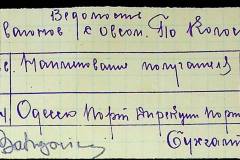 Ведомость
вагонов с овсом. По Колос
е. Наименование получателя
Одесса Порт Дирекции пор
Бухгал